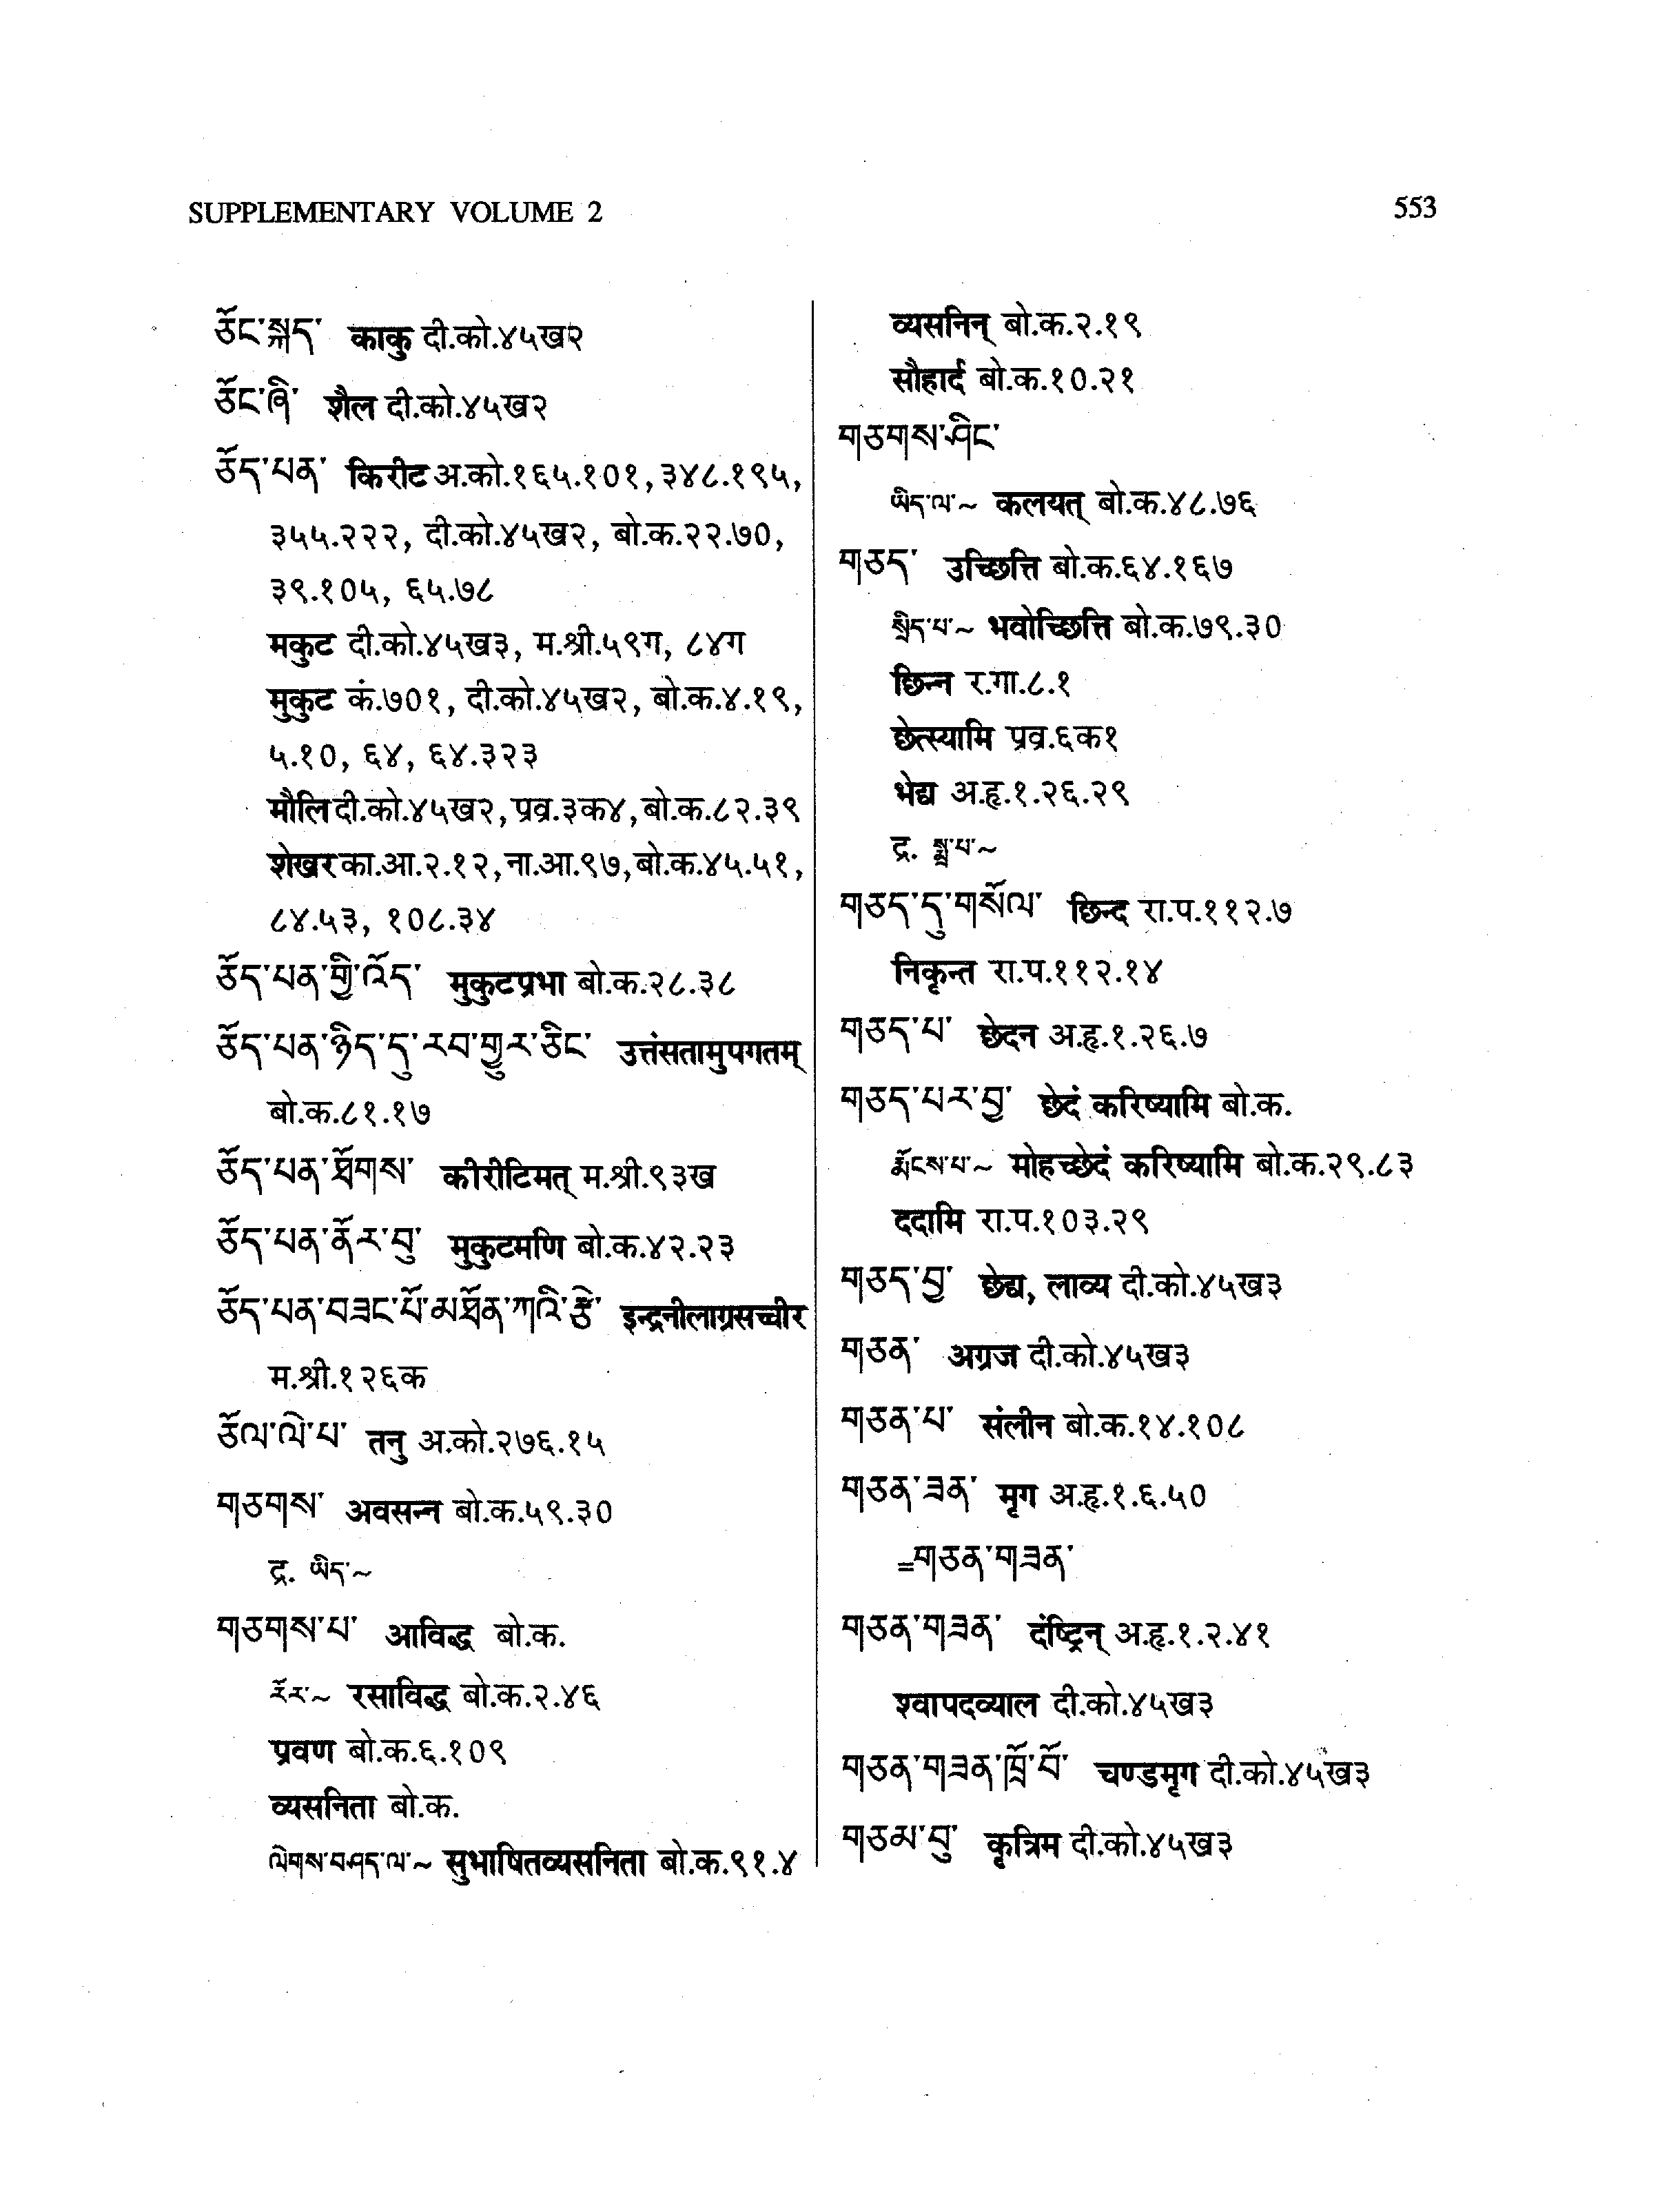 SUPPLEMENTARY VOLUME 2
553
ཅོང་སྐད་ काकु दी.को.४५ख२
ཅོང་ཞི་ शैल दी.को.४५ख२
ཅོད་པན་ किरीट अ.को.१६५.१०१, ३४८.१९५,
३५५.२२२, दी.को.४५ख२, बो.क.२२.७०,
३९.१०५, ६५.७८
मकुट दी.को.४५ख३, म.श्री.५९ग, ८४ग
मुकुट कं.७०१, दी.को.४५ख२, बो.क.४.१९,
५.१०, ६४, ६४.३२३
मौलि दी.को.४५ख२, प्रव्र.३क४, बो.क.८२.३९
शेखर का.आ.२.१२, ना.आ.९७, बो.क.४५.५१,
८४.५३, १०८.३४
ཅོད་པན་གྱི་འོད་ मुकुटप्रभा बो.क.२८.३८
ཅོད་པན་ཉིད་དུ་རབ་གྱུར་ཅིང་ उत्तंसतामुपगतम्
बो.क.८१.१७
ཅོད་པན་ཐོགས་ कीरीटिमत् म.श्री.९३ख
ཅོད་པན་ནོར་བུ་ मुकुटमणि बो.क.४२.२३
ཅོད་པན་བཟང་པོ་མཐོན་ཀའི་རྩེ་ इन्द्रनीलाग्रसच्चीर
म.श्री.१२६क
ཅོལ་ལེ་པ་ तनु अ.को.२७६.१५
གཅགས་ अवसन्न बो.क.५९.३०
द्र. ཡིད་~
གཅགས་པ་ आविद्ध बो.क.
རོར་~ रसाविद्ध बो.क.२.४६
प्रवण बो.क.६.१०९
व्यसनिता बो.क.
ལེགས་བཤད་ལ་~ सुभाषितव्यसनिता बो.क.९१.४
व्यसनिन् बो.क.२.१९
सौहार्द बो.क.१०.२१
གཅགས་ཤིང་
ཡིད་ལ་~ कलयत् बो.क.४८.७६
གཅད་ उच्छित्ति बो.क.६४.१६७
སྲིད་པ་~ भवोच्छित्ति बो.क.७९.३०
छिन्न र.गा.८.१
छेत्स्यामि प्रव्र.६क१
भेद्य अ.हृ.१.२६.२९
द्र. སྨྲ་པ་~
གཅད་དུ་གསོལ་ छिन्द रा.प.११२.७
निकृन्त रा.प.११२.१४
གཅད་པ་ छेदन अ.हृ.१.२६.७
གཅད་པར་བྱ་ छेदं करिष्यामि बो.क.
རྨོངས་པ་~ मोहच्छेदं करिष्यामि बो.क.२९.८३
ददामि रा.प.१०३.२९
གཅད་བྱ་ छेद्य, लाव्य दी.को.४५ख३
གཅན་ अग्रज दी.को.४५ख३
གཅན་པ་ संलीन बो.क.१४.१०८
གཅན་ཟན་ मृग अ.हृ.१.६.५०
=གཅན་གཟན་
གཅན་གཟན་ दंष्ट्रिन् अ.हृ.१.२.४१
श्वापदव्याल दी.को.४५ख३
གཅན་གཟན་ཁྲོ་བོ་ चण्डमृग दी.को.४५ख३
གཅམ་བུ་ कृत्रिम दी.को.४५ख३